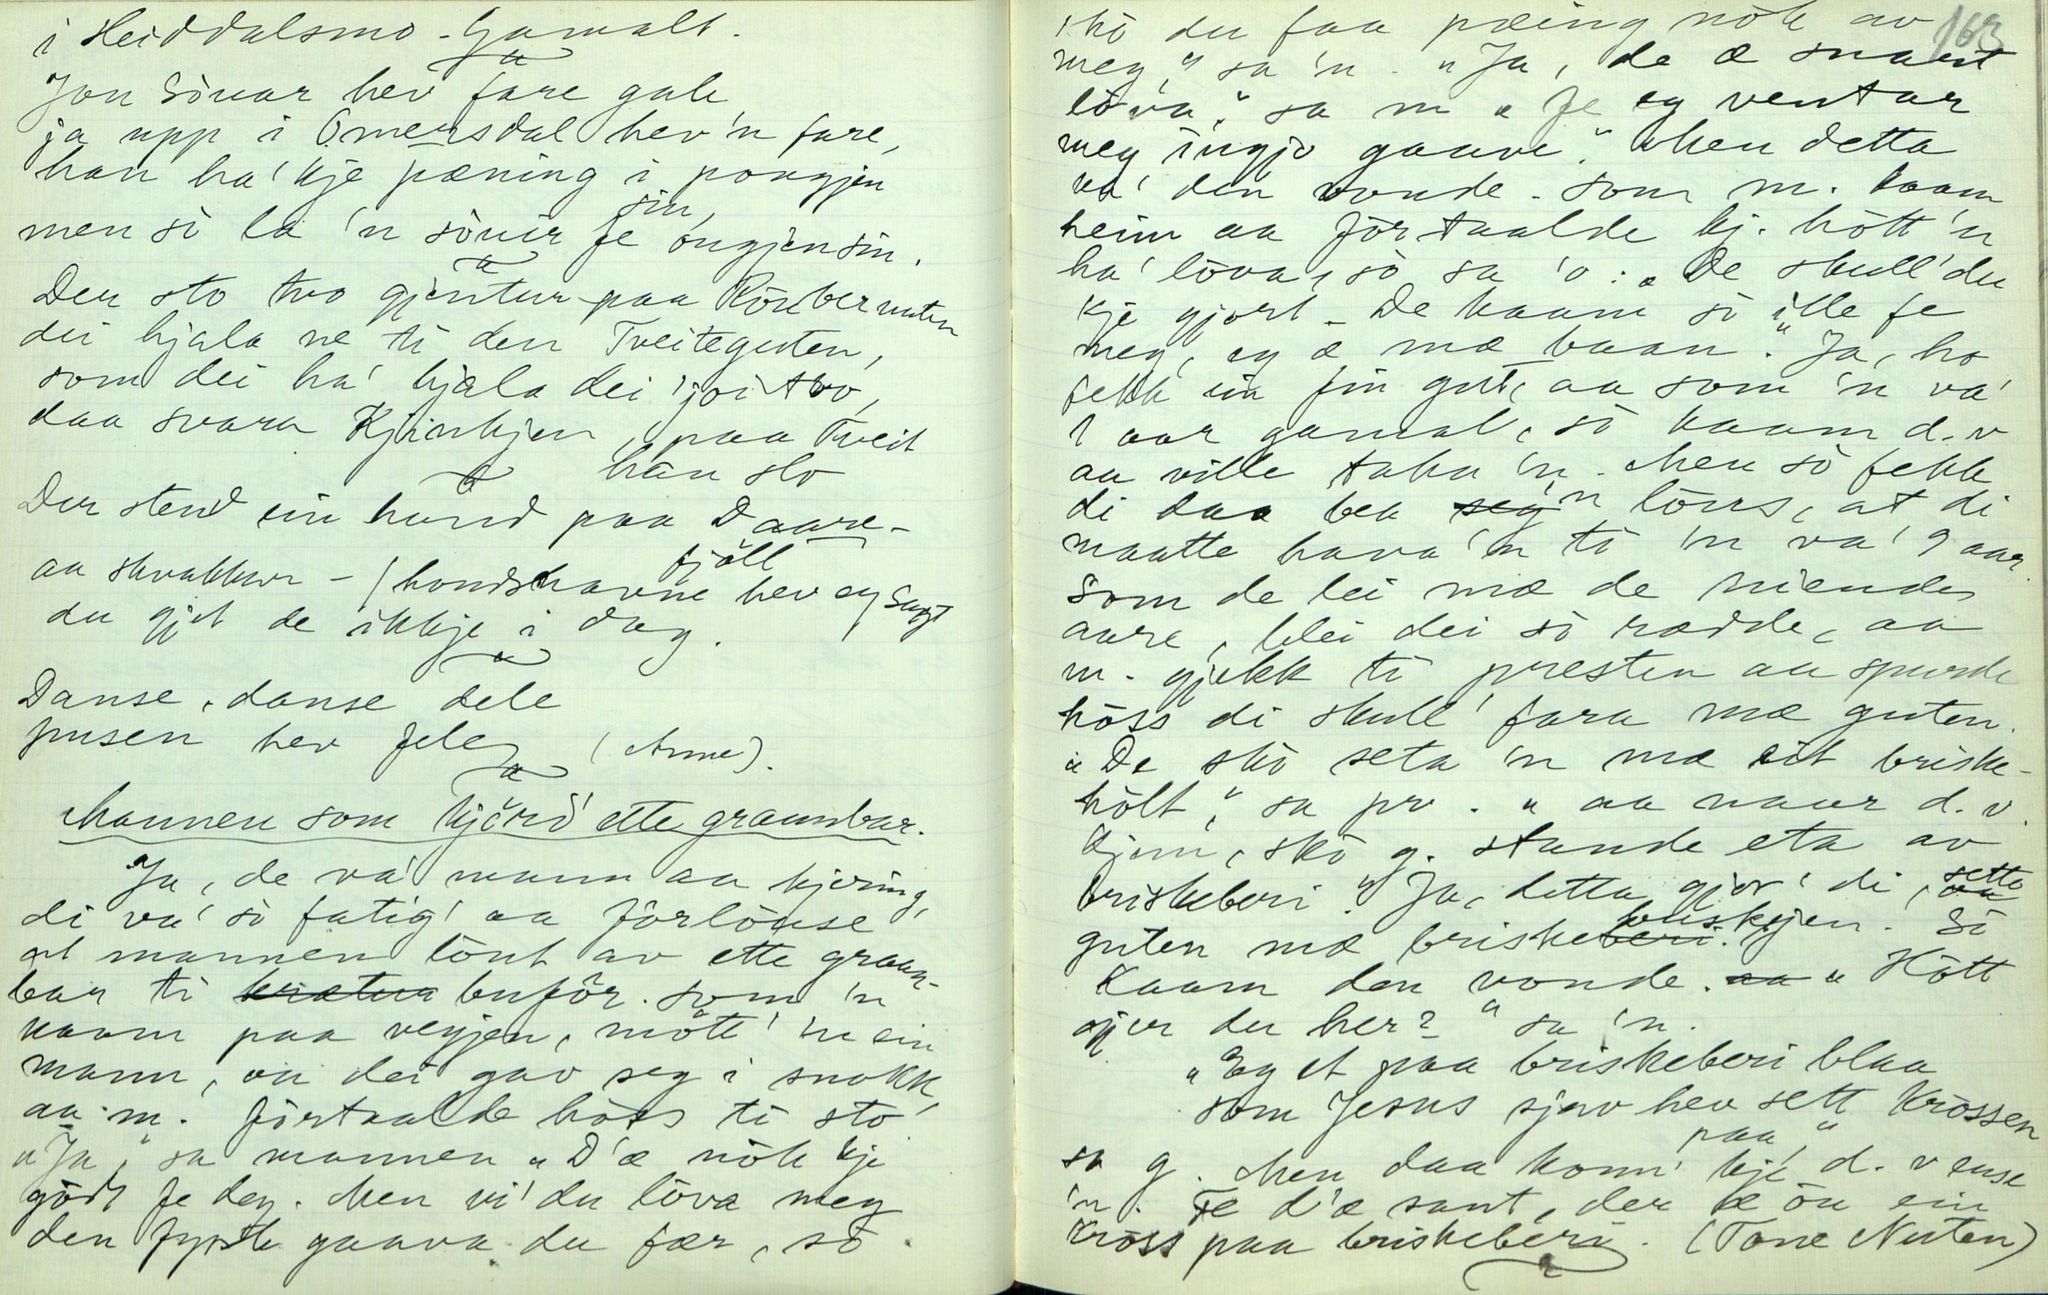 i Heiddalsmo - Gamalt.
Jon Sönar hev fare gale
ja upp i Omersdal hev'n fare,
han ha' kje pæning i pongjen
sin,
men sò la 'n sönir fe ongjen sin.
Der sto two gjentur paa Rönbernuten
dei hjala ne ti den Tveiteguten,
som dei ha' hjala dei joi two,
daa svara Kjinkjen, paa Tveit
han slo
Der stend ein hund paa Daare-
fjöll
aa skvakkur - (hondskarvne hev eg sagt
du gjet de ikkje i dag.
Danse, danse dele
pusen hev fele (Anne).
Mannen som kjörd' ette graunbar.
Ja, de va' mann aa kjering,
di va' sò fatig' aa förlöuse
at mannen lönt av ette graun-
bar ti krætur buför. Som 'n
kaam paa vegjen, mötte 'n ein
mann, aa dei gav seg i snakk,
aa m. förtaalde höss ti sto
"Ja," sa mannen "D'æ nök kje
gödt fe deg. Men vi' du löva meg
den fyste gaava du fær, sò
skò du faa pæing nök av 163
meg," sa 'n. "Ja, de æ snart
löva," sa m "Fe eg ventar
meg ingjo gaave." Men detta
va' den vonde. Som m. kaam
heim aa förtaalde kj. hött 'n
ha' löva, sò sa 'o: "De skull' du
kje gjort - De kaam sò ille fe
meg, eg æ mæ baan." Ja, ho
fekk ein fin gut, aa som 'n va'
1 aar gamal, sò kaam d. v
aa ville taka 'n. Men sò fekk
di daa bea seg 'n löus, at di
maatte hava 'n ti 'n va' 9 aar.
Som de lei mæ de niende
aare, blei dei sò rædde, aa
m. gjekk ti presten aa spurde
höss di skull' fara mæ guten.
"De skò seta 'n mæ eit briske-
hölt," sa pr. "aa naar d. v.
kjem, skò g. stande eta av
briskeberi." Ja, detta gjor' di, aa sette
guten mæ briskeberi. briskjen. Sò
kaam den vonde. aa "Hött
gjer du her?" sa 'n.
"Eg et paa briskeberi blaa
som Jesus sjøv hev sett krossen
paa,"
sa g. Men daa konn' kje d. v ense
'n. Fe d'æ sant, der æ öu ein
kross paa briskeberi. (Tone Nuten)